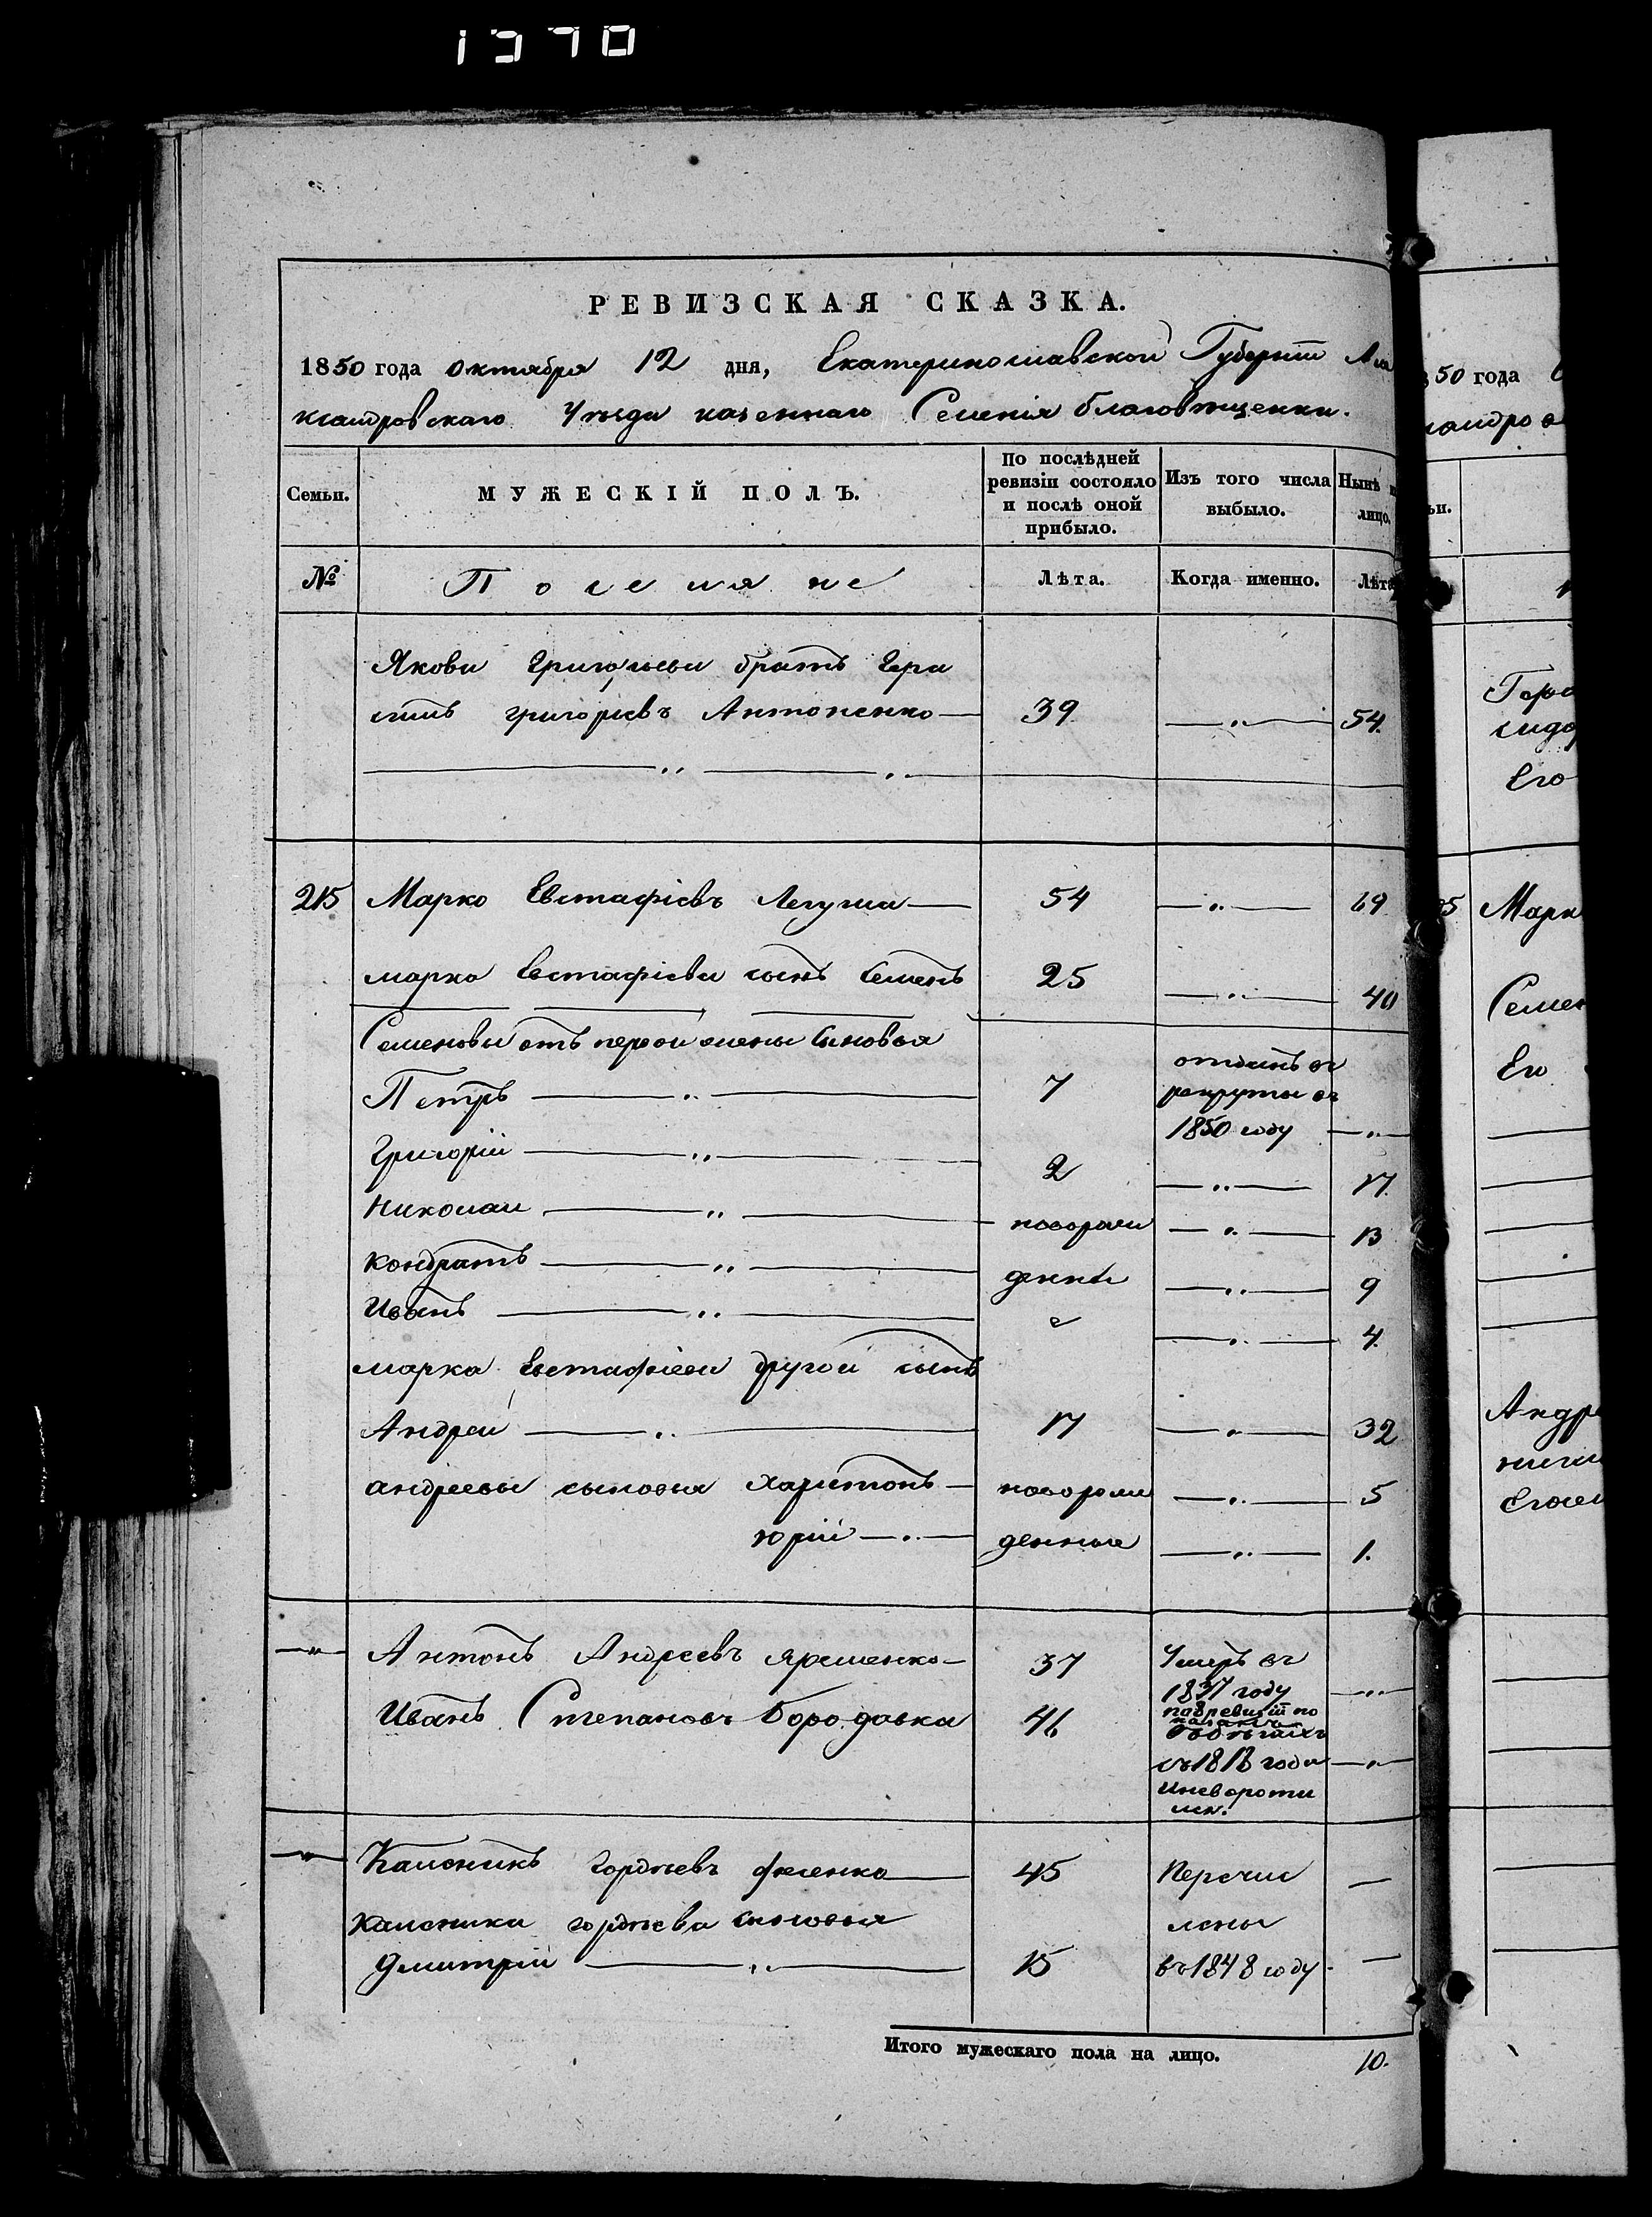 1370
РЕВИЗСКАЯ СКАЗКА.
1850 года октября 12 дня, Екатеринославской Губернiи Але
ксандровскаго Уѣзда казеннаго Селенiя Благовѣщенки.
Семьи. МУЖЕСКIЙ ПОЛЪ. По послѣдней ревизiи состояло и послѣ оной прибыло. Изъ того числа выбыло. Нынѣ лицо.
№ Поселяне Лѣта. Когда именно. Лѣта
Якова Григорьева братъ Гера
симъ Григорiевъ Антоненко 39 — „ — 54.
215 Марко Евстафiевъ 54 — „ — 69
Марка Евстафiева сынъ Семенъ 25 — „ — 40
Семеновы отъ первой жены сыновья
Петръ — „ — 7 отданъ въ рекруты въ 1850 году — „ —
Григорiй — „ — 2 — „ — 17.
Николай — „ — новорож — „ — 13
Кондратъ — „ — денны — „ — 9
Иванъ — „ — — „ — 4.
Марка Евстафiева другой сынъ
Андрей — „ — 17 — „ — 32
Андреевы сыновья Харитонъ — новорож — „ — 5
Юрiй — „ — денные — „ — 1.
— „ — Антонъ Андреевъ Яременко — 37 Умеръ въ 1837 году — „ —
Иванъ Степановъ Бородавка 46 ревизiи по
съ 1813 года — „ —
и невороти
лся.
— „ — Калюникъ Гордѣевъ 45 Перечис —
Калюника Гордѣева сыновья лены
Дмитрiй — „ — 15 въ 1848 году. —
Итого мужескаго пола на лицо. 10.
50 года
Геро
сидор
Его
Марк
Семен
Его
Андре